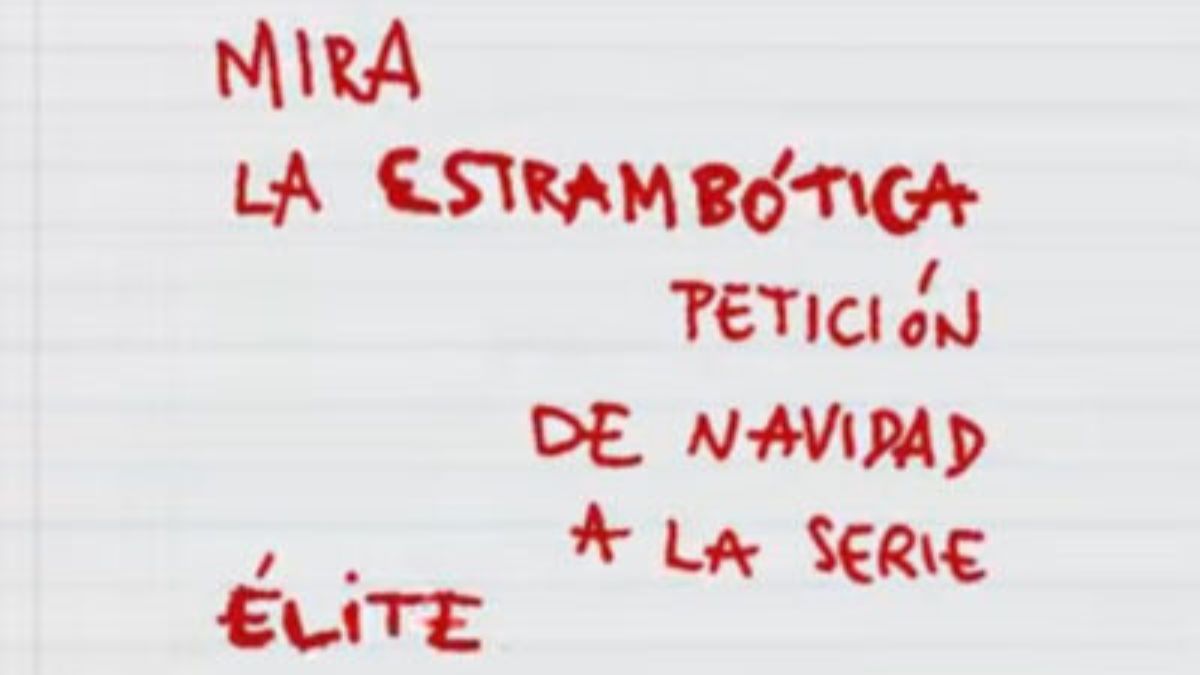 MIRA
LA ESTRAMBÓTICA
PETICIÓN
DE NAVIDAD
A LA SERIE
ÉLITE